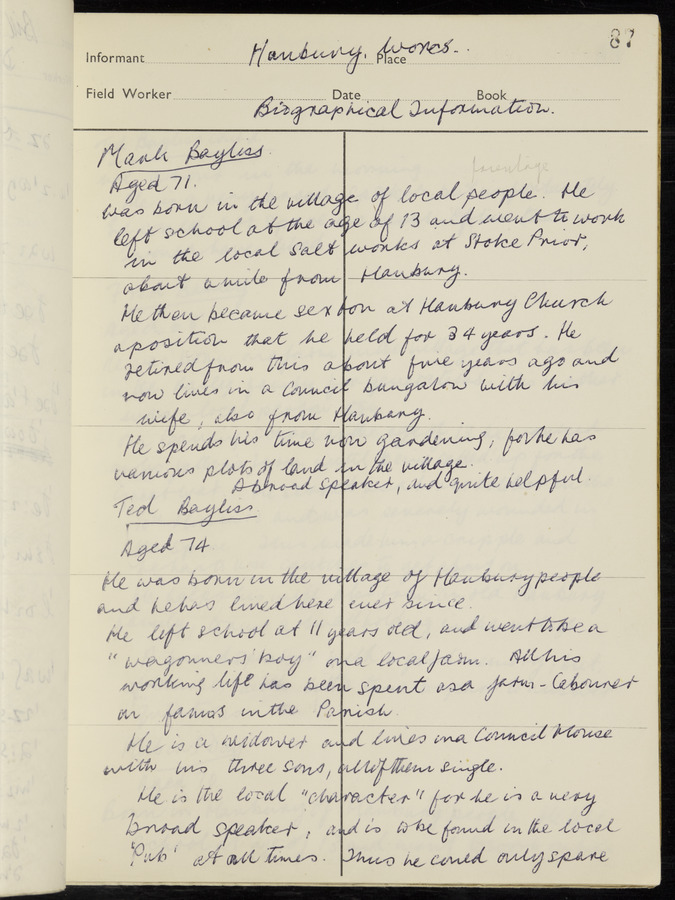 87
Informant Hanbury, Worcs. Place
Field Worker Date Book
Biographical Information.
Mark Bayliss
Aged 71. parentage
was born in the village of local people. He
left school at the age of 13 and went to work
in the local Salt works at Stoke Prior,
about a mile from Hanbury.
He then became sexton at Hanbury Church
a position that he held for 34 years. He
retired from this about five years ago and
now lives in a Council bungalow with his
wife, also from Hanbury.
He spends his time now gardening, for he has
various plots of land in the village.
A broad speaker, and quite helpful.
Ted Bayliss
Aged 74
He was born in the village of Hanbury people
and he has lived here ever since.
He left school at 11 years old, and went to be a
"wagonners' boy" on a local farm. All his
working life has been spent as a farm-labourer
on farms in the Parish.
He is a widower and lives in a Council House
with his three sons, all of them single.
He is the local "character" for he is a very
broad speaker, and is to be found in the local
'Pub' at all times. Thus he could only spare